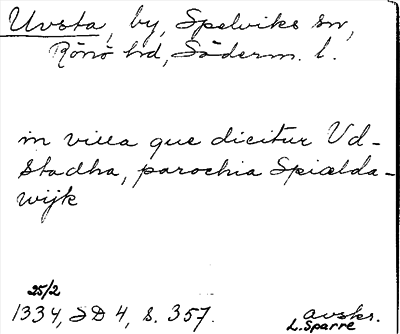 Uvsta, by, Spelviks sn,
Rönö hd, Söderm. l.
in villa que dicitur Vd-
stadha, parochia Spiælda-
wijk
25/2
1334, SD 4, s. 357.
avskr.
L. Sparre